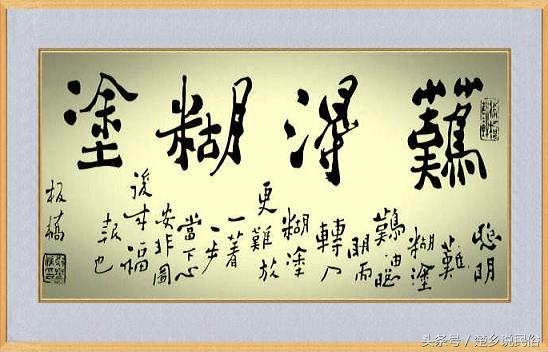 難得糊塗
聰明
難
糊塗
難由聰
明而
轉入
糊塗
更難放
一著
一步
當下心
安非圖
後来福
報也
板橋
头条号 / 楚乡说民俗